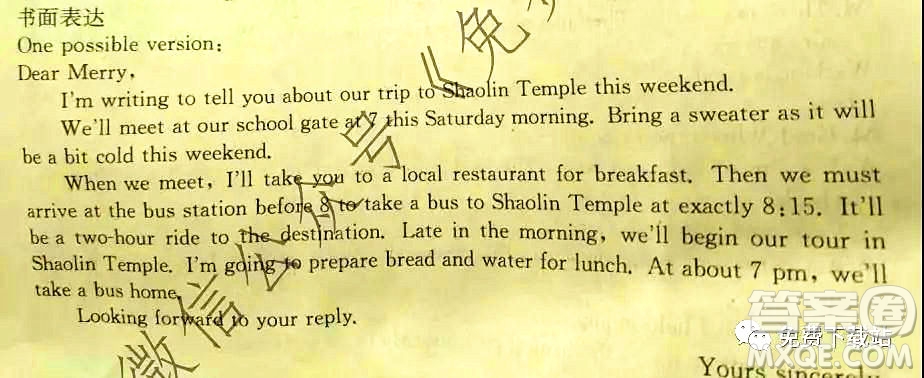 书面表达
One possible version:
Dear Merry,
I'm writing to tell you about our trip to Shaolin Temple this weekend.
We'll meet at our school gate at 7 this Saturday morning. Bring a sweater as it will
be a bit cold this weekend.
When we meet, I'll take you to a local restaurant for breakfast. Then we must
arrive at the bus station before 8 to take a bus to Shaolin Temple at exactly 8:15. It'll
be a two-hour ride to the destination. Late in the morning, we'll begin our tour in
Shaolin Temple. I'm going to prepare bread and water for lunch. At about 7 pm, we'll
take a bus home.
Looking forward to your reply.
Yours sincerely,
答案圈
免费下载站
MXQE.COM
微信
号
《免